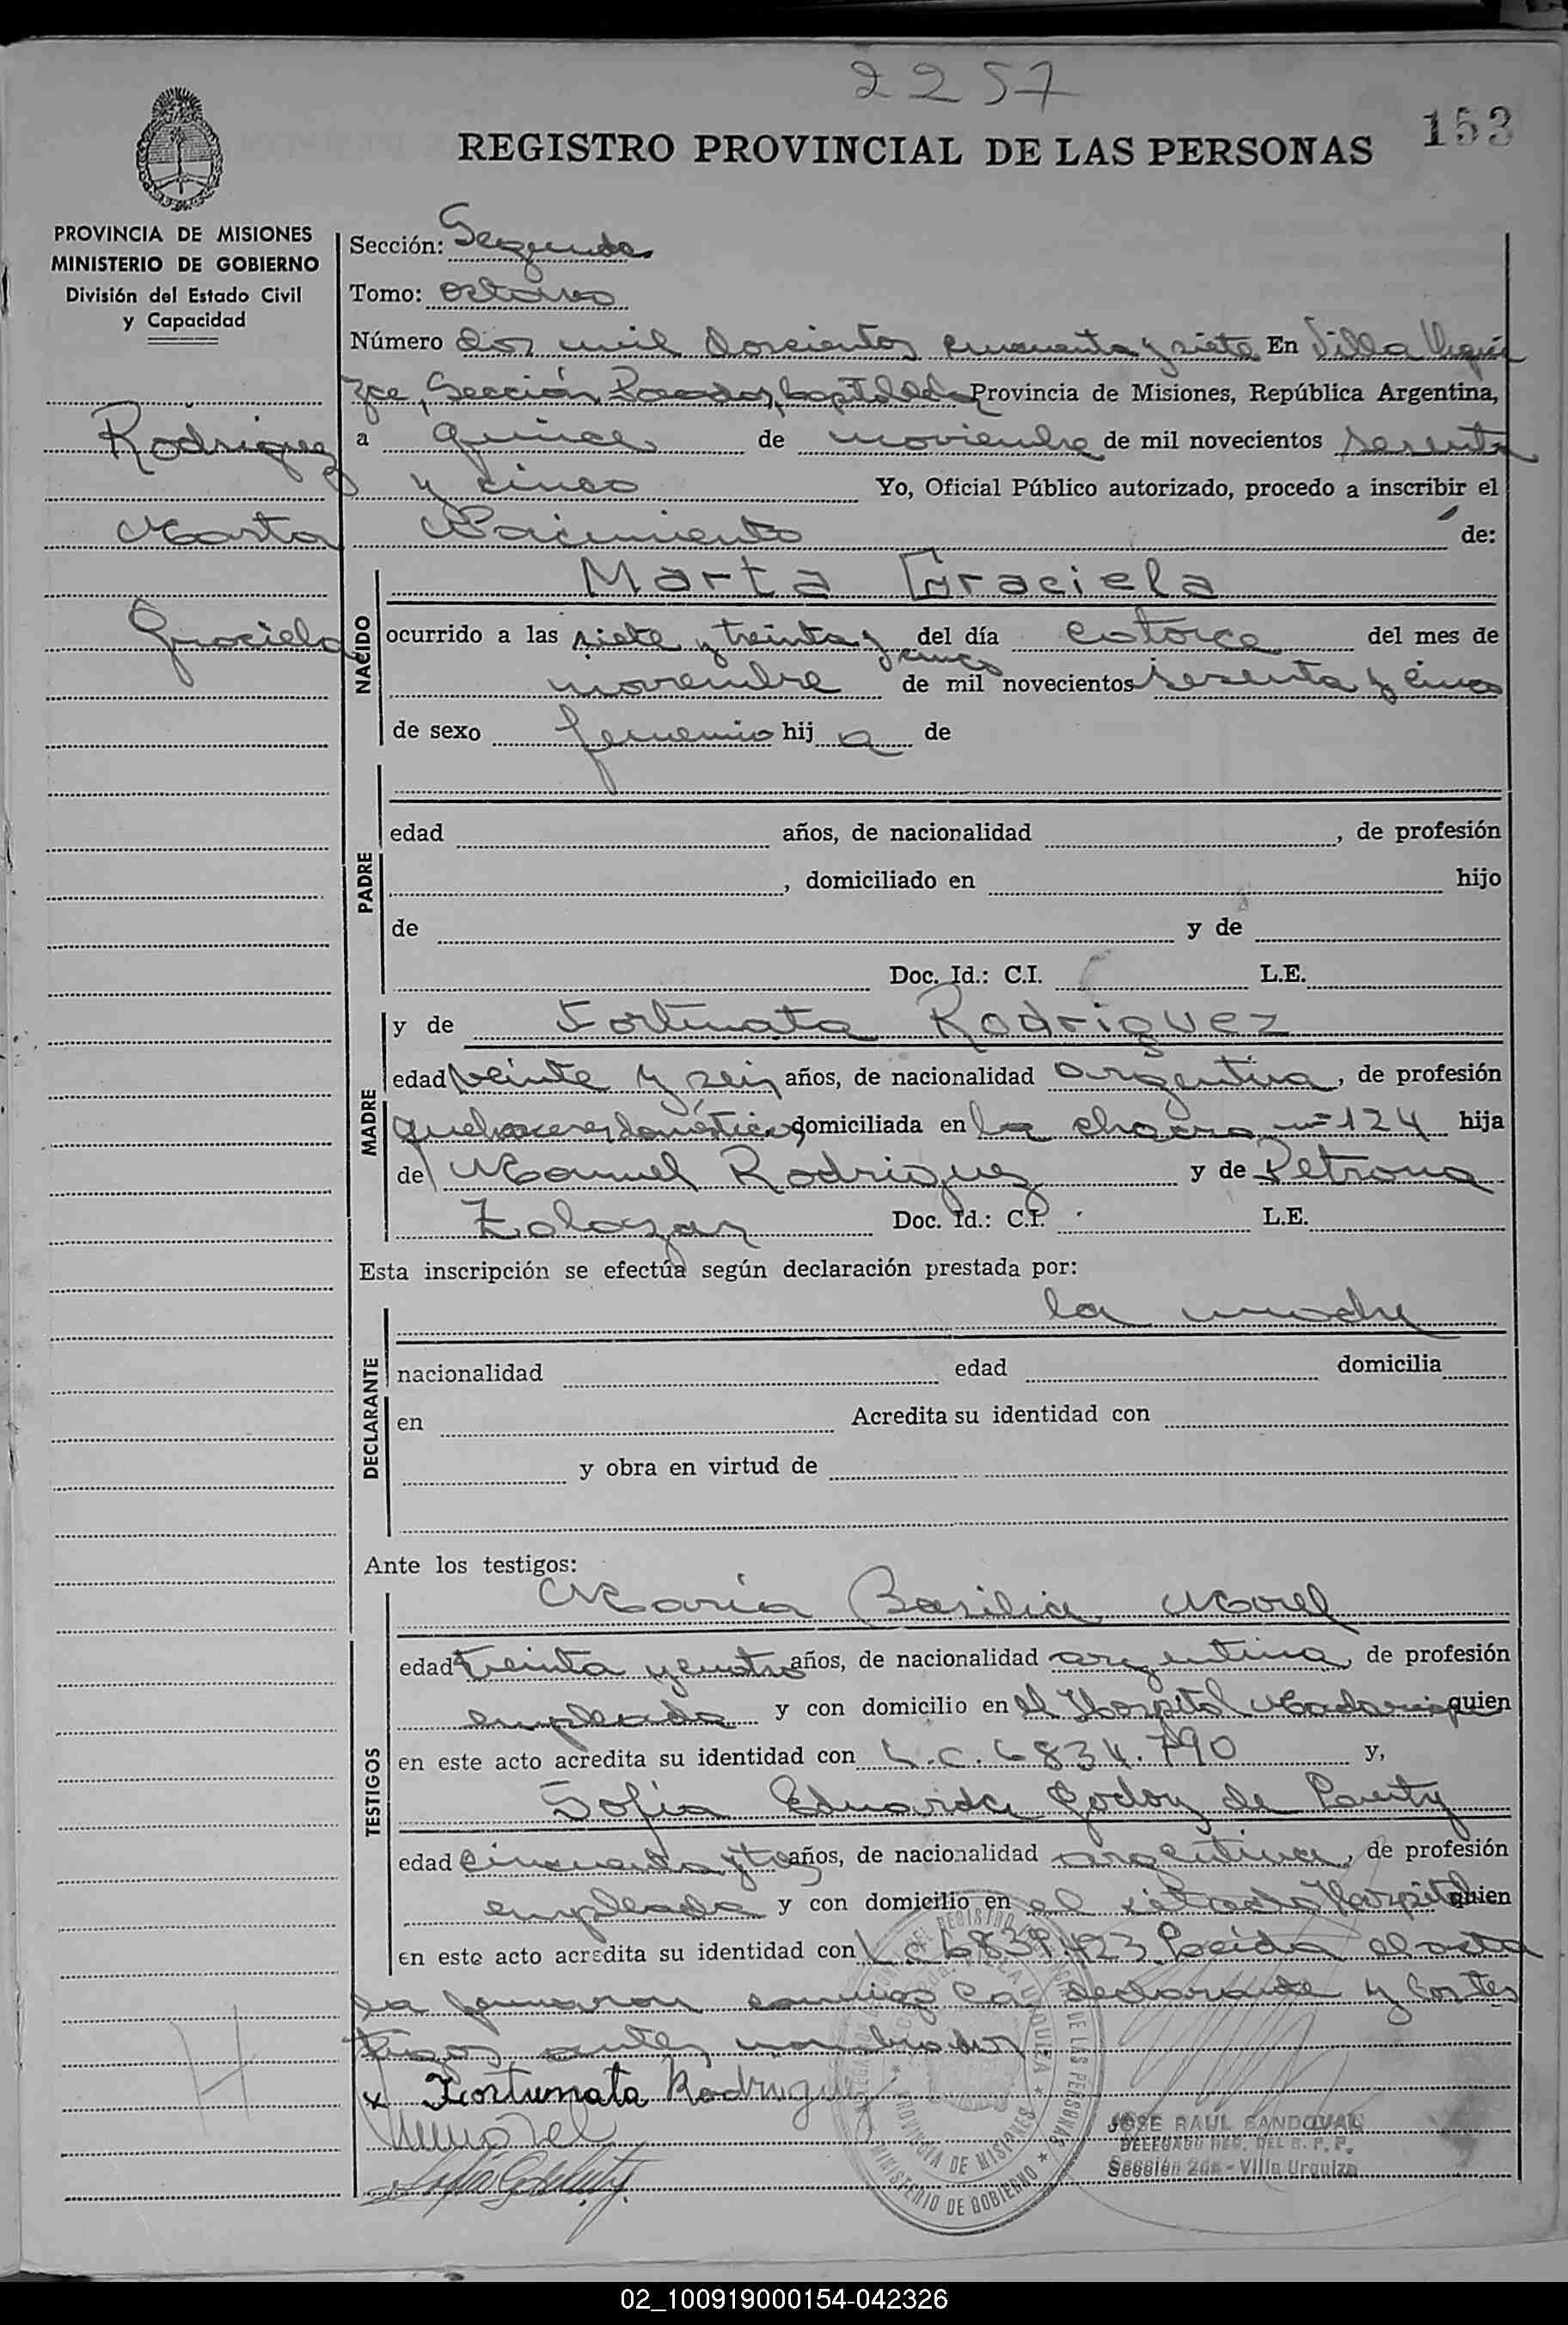 2257
REGISTRO PROVINCIAL DE LAS PERSONAS
153
PROVINCIA DE MISIONES
MINISTERIO DE GOBIERNO
División del Estado Civil
y Capacidad
Rodriguez
Marta
Graciela
Sección: Segunda
Tomo: octavo
Número dos mil doscientos cincuenta y siete En Villa Urqui
za, Sección Posadas, Capital de la Provincia de Misiones, República Argentina,
a quince de noviembre de mil novecientos sesenta
y cinco Yo, Oficial Público autorizado, procedo a inscribir el
Nacimiento de:
NACIDO
Marta Graciela
ocurrido a las siete y treinta y cinco del día catorce del mes de
noviembre de mil novecientos sesenta y cinco
de sexo femenino hij a de
PADRE
edad años, de nacionalidad , de profesión
, domiciliado en hijo
de y de
Doc. Id.: C.I. L.E.
MADRE
y de Fortunata Rodriguez
edad veinte y seis años, de nacionalidad argentina, de profesión
quehaceres domésticos domiciliada en la chacra nº 124 hija
de Manuel Rodriguez y de Petrona
Zalazar Doc. Id.: C.I. L.E.
Esta inscripción se efectúa según declaración prestada por:
DECLARANTE
la madre
nacionalidad edad domicilia
en Acredita su identidad con
y obra en virtud de
Ante los testigos:
TESTIGOS
María Basilia Morel
edad treinta y cuatro años, de nacionalidad argentina, de profesión
empleada y con domicilio en el Hospital Madariaga quien
en este acto acredita su identidad con L.C. 6834.790 y,
Sofia Eduarda Godoy de
edad cincuenta y tres años, de nacionalidad argentina, de profesión
empleada y con domicilio en el citado Hospital quien
en este acto acredita su identidad con L.C. 6839.423 Leida el acta
la firmaron conmigo la declarante y los tes
tigos antes nombrados
x Fortunata Rodriguez
MMorel
JOSE RAUL SANDOVAL
DELEGADO REG. DEL R. P. P.
Sección 2da - Villa Urquiza
PROVINCIA DE MISIONES
MINISTERIO DE GOBIERNO
02_100919000154-042326